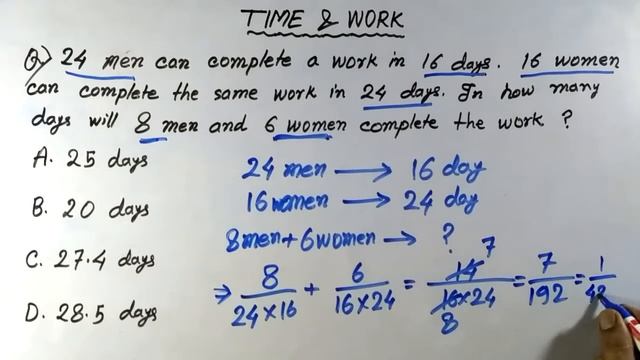 TIME & WORK
Q) 24 men can complete a work in 16 days. 16 women
can complete the same work in 24 days. In how many
days will 8 men and 6 women complete the work ?
A. 25 days
B. 20 days
C. 27.4 days
D. 28.5 days
24 men → 16 day
16 women → 24 day
8 men + 6 women → ?
⇒ 8/24×16 + 6/16×24 = 14/16×24 = 7/192 = 1/
7
8